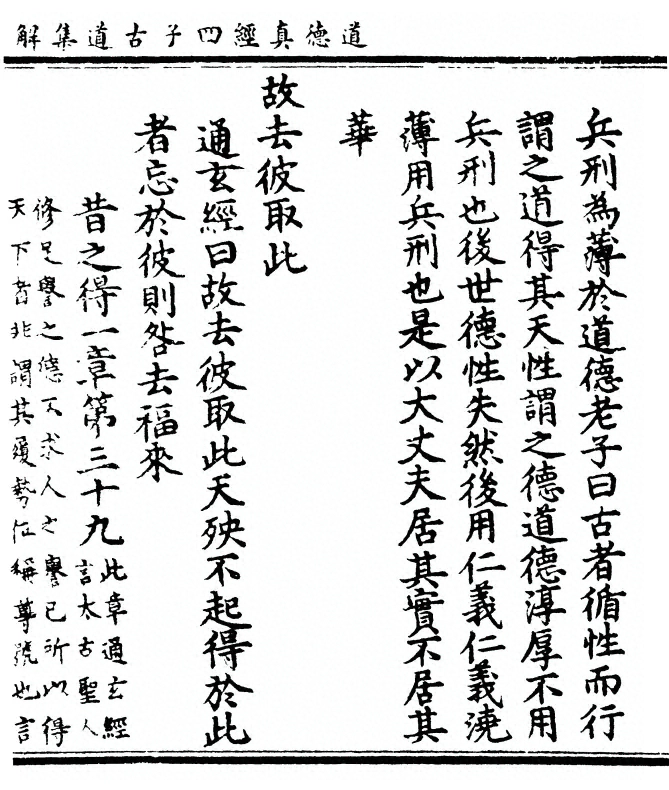 道德真經四子古道集解
兵刑為薄於道德老子曰古者循性而行
謂之道得其天性謂之德道德淳厚不用
兵刑也後世德性失然後用仁義仁義澆
薄用兵刑也是以大丈夫居其實不居其
華
故去彼取此
通玄經曰故去彼取此天殃不起得於此
者忘於彼則咎去福來
昔之得一章第三十九
此章通玄經
言太古聖人
修足譽之德不求人之譽已所以得
天下者非謂其履勢位稱尊號也言